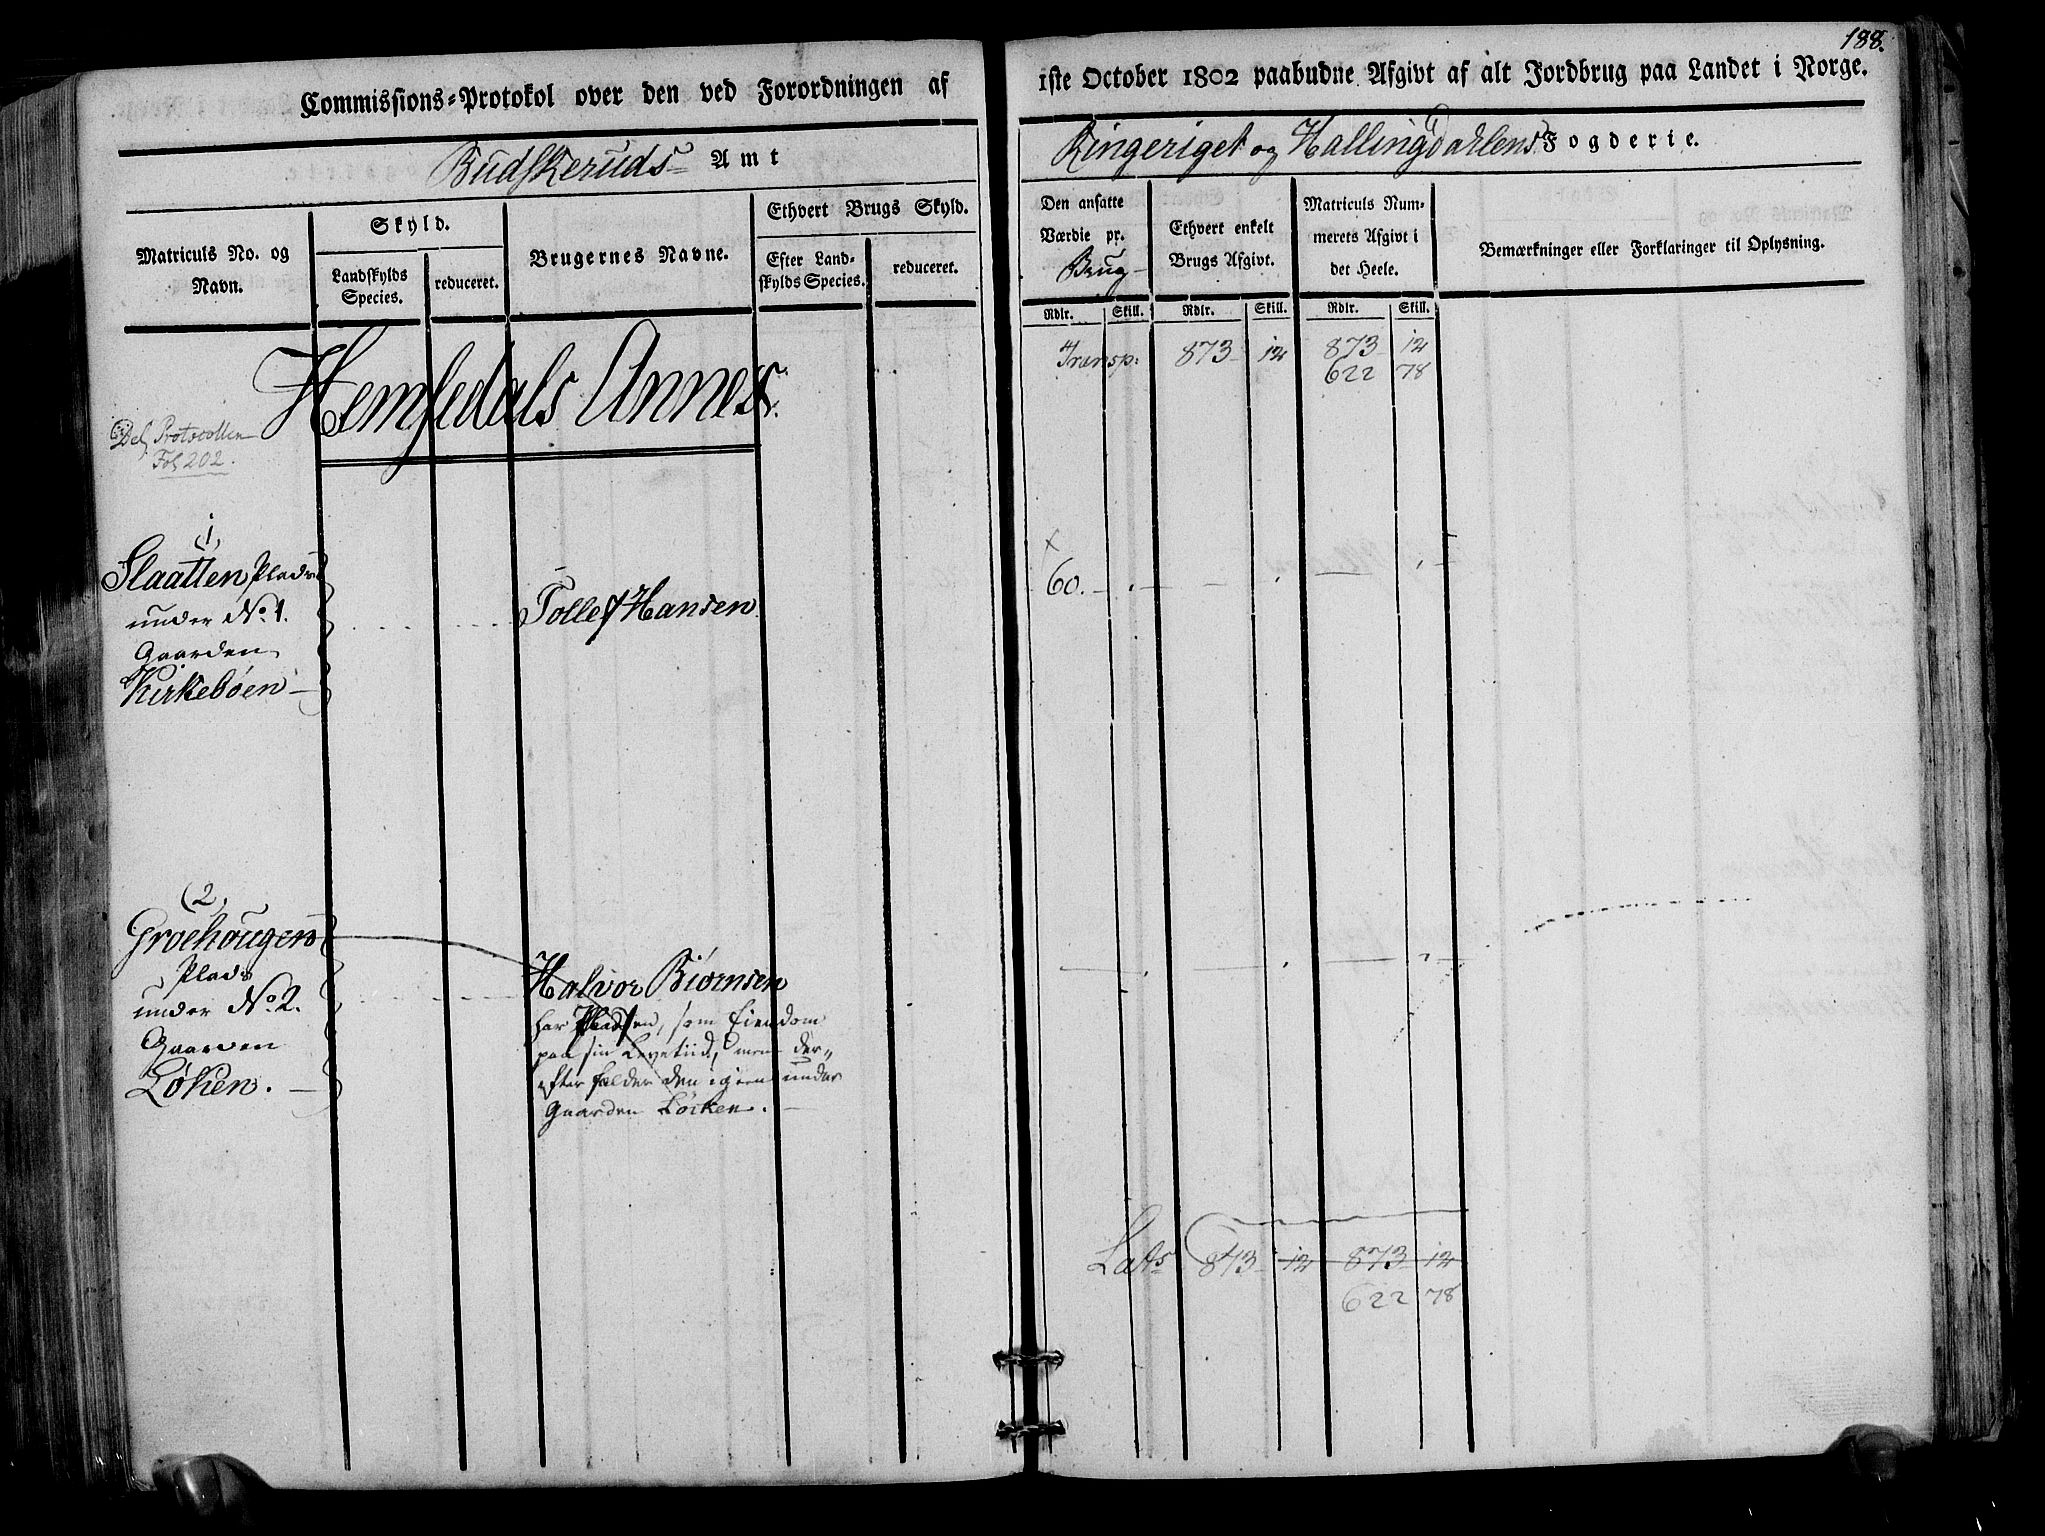 188.
Commissions-Protokol over den ved Forordningen af 1ste October 1802 paabudne Afgivt af alt Jordbrug paa Landet i Norge.
Budskeruds Amt
Ringeriget og Hallingdahlens Fogderie.
Matriculs No. og Navn.
Skyld.
Landskylds Species.
reduceret.
Brugernes Navne.
Ethvert Brugs Skyld.
Efter Landskylds Species.
reduceret.
Den ansatte Værdie pr. Brug
Ethvert enkelt Brugs Afgivt.
Matriculs Nummerets Afgivt i det Heele.
Bemærkninger eller Forklaringer til Oplysning.
Rdlr. Skill. Rdlr. Skill. Rdlr. Skill.
Transp: 873 12 873 12
622 78
Hemsedals Annex.
Protocollen
Fol 202.
1,
Slaatten, Plads
under No. 1.
Gaarden
Kirkebøen
Tollef Hansen
x
60.
(2,
Groehougen
Plads
under No. 2.
Gaarden
Løken.
Halvor Biørnsen
har Pladsen, som Eiendom
paa sin Levetiid, men der-
efter falder den igien under
Gaarden Løcken.
Lats 873 12 873 12
622 78